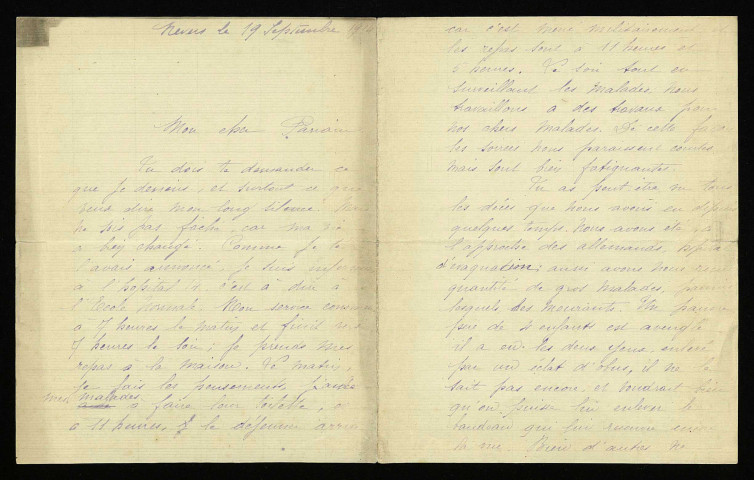 Nevers le 19 Septembre
Mon cher Parrain
Tu dois te demander ce
que je deviens, et surtout ce que
veut dire mon long silence.
ne sois pas fâché, car ma vie
a bien changé. Comme je te
l'avais annoncé, je suis infirmière
à l'hôpital c'est à dire à
l'École normale. Mon service commence
à 7 heures le matin et finit
7 heures le soir; je prends mes
repas à la maison. Le matin,
je fais les pansements, j'aide
mes malades à faire leur toilette,
à 11 heures, le déjeuner arrive
car c'est mené militairement et
les repas sont à 11 heures et
5 heures. Le soir tout en
surveillant les malades nous
travaillons à des travaux pour
nos chers malades. De cette façon
les soirées nous paraissent courtes
mais sont bien fatigantes.
Tu as peut être su tous
les décès que nous avons eu depuis
quelques temps. Nous avons été
l'approche des allemands
d'évaquation; aussi avons nous
quantité de gros malades, parmi
lesquels des mourants. Un pauvre
père de 4 enfants est aveugle
il a eu les deux yeux enlevé
par un éclat d'obus, il ne le
sait pas encore et voudrait bien
qu'on puisse lui enlever le
bandeau qui lui
la vue. Bien d'autres ne